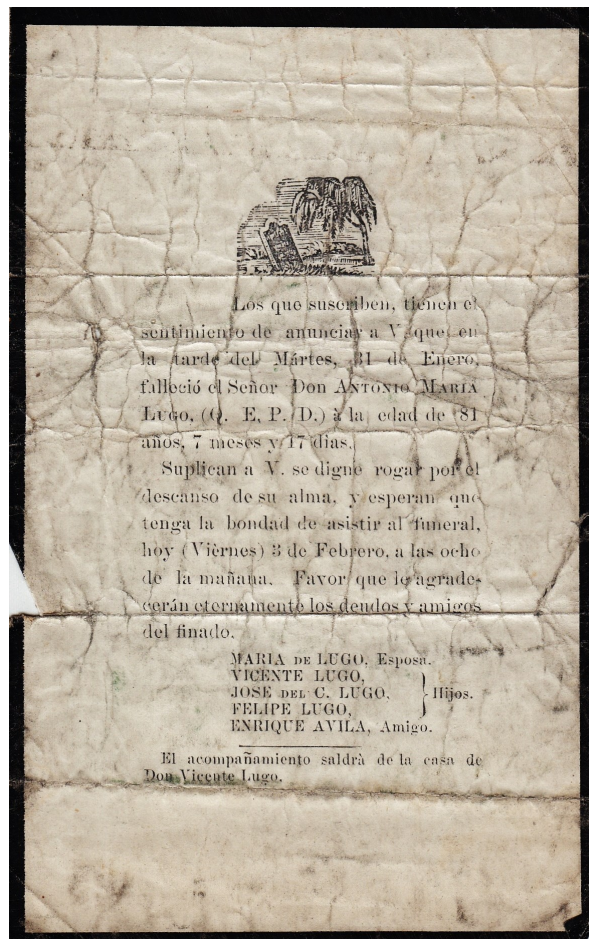 Los que suscriben, tienen el
sentimiento de anunciar a V. que en
la tarde del Mártes, 31 de Enero,
falleció el Señor Don ANTONIO MARIA
LUGO, (Q. E. P. D.) à la edad de 81
años, 7 meses y 17 dias.
Suplican a V. se digne rogar por el
descanso de su alma, y esperan que
tenga la bondad de asistir al funeral,
hoy (Vièrnes) 3 de Febrero, a las ocho
de la mañana. Favor que le agrade-
cerán eternamente los deudos y amigos
del finado.
MARIA DE LUGO, Esposa.
VICENTE LUGO,
JOSE DEL C. LUGO, } Hijos.
FELIPE LUGO,
ENRIQUE AVILA, Amigo.
El acompañamiento saldrà de la casa de
Don Vicente Lugo.